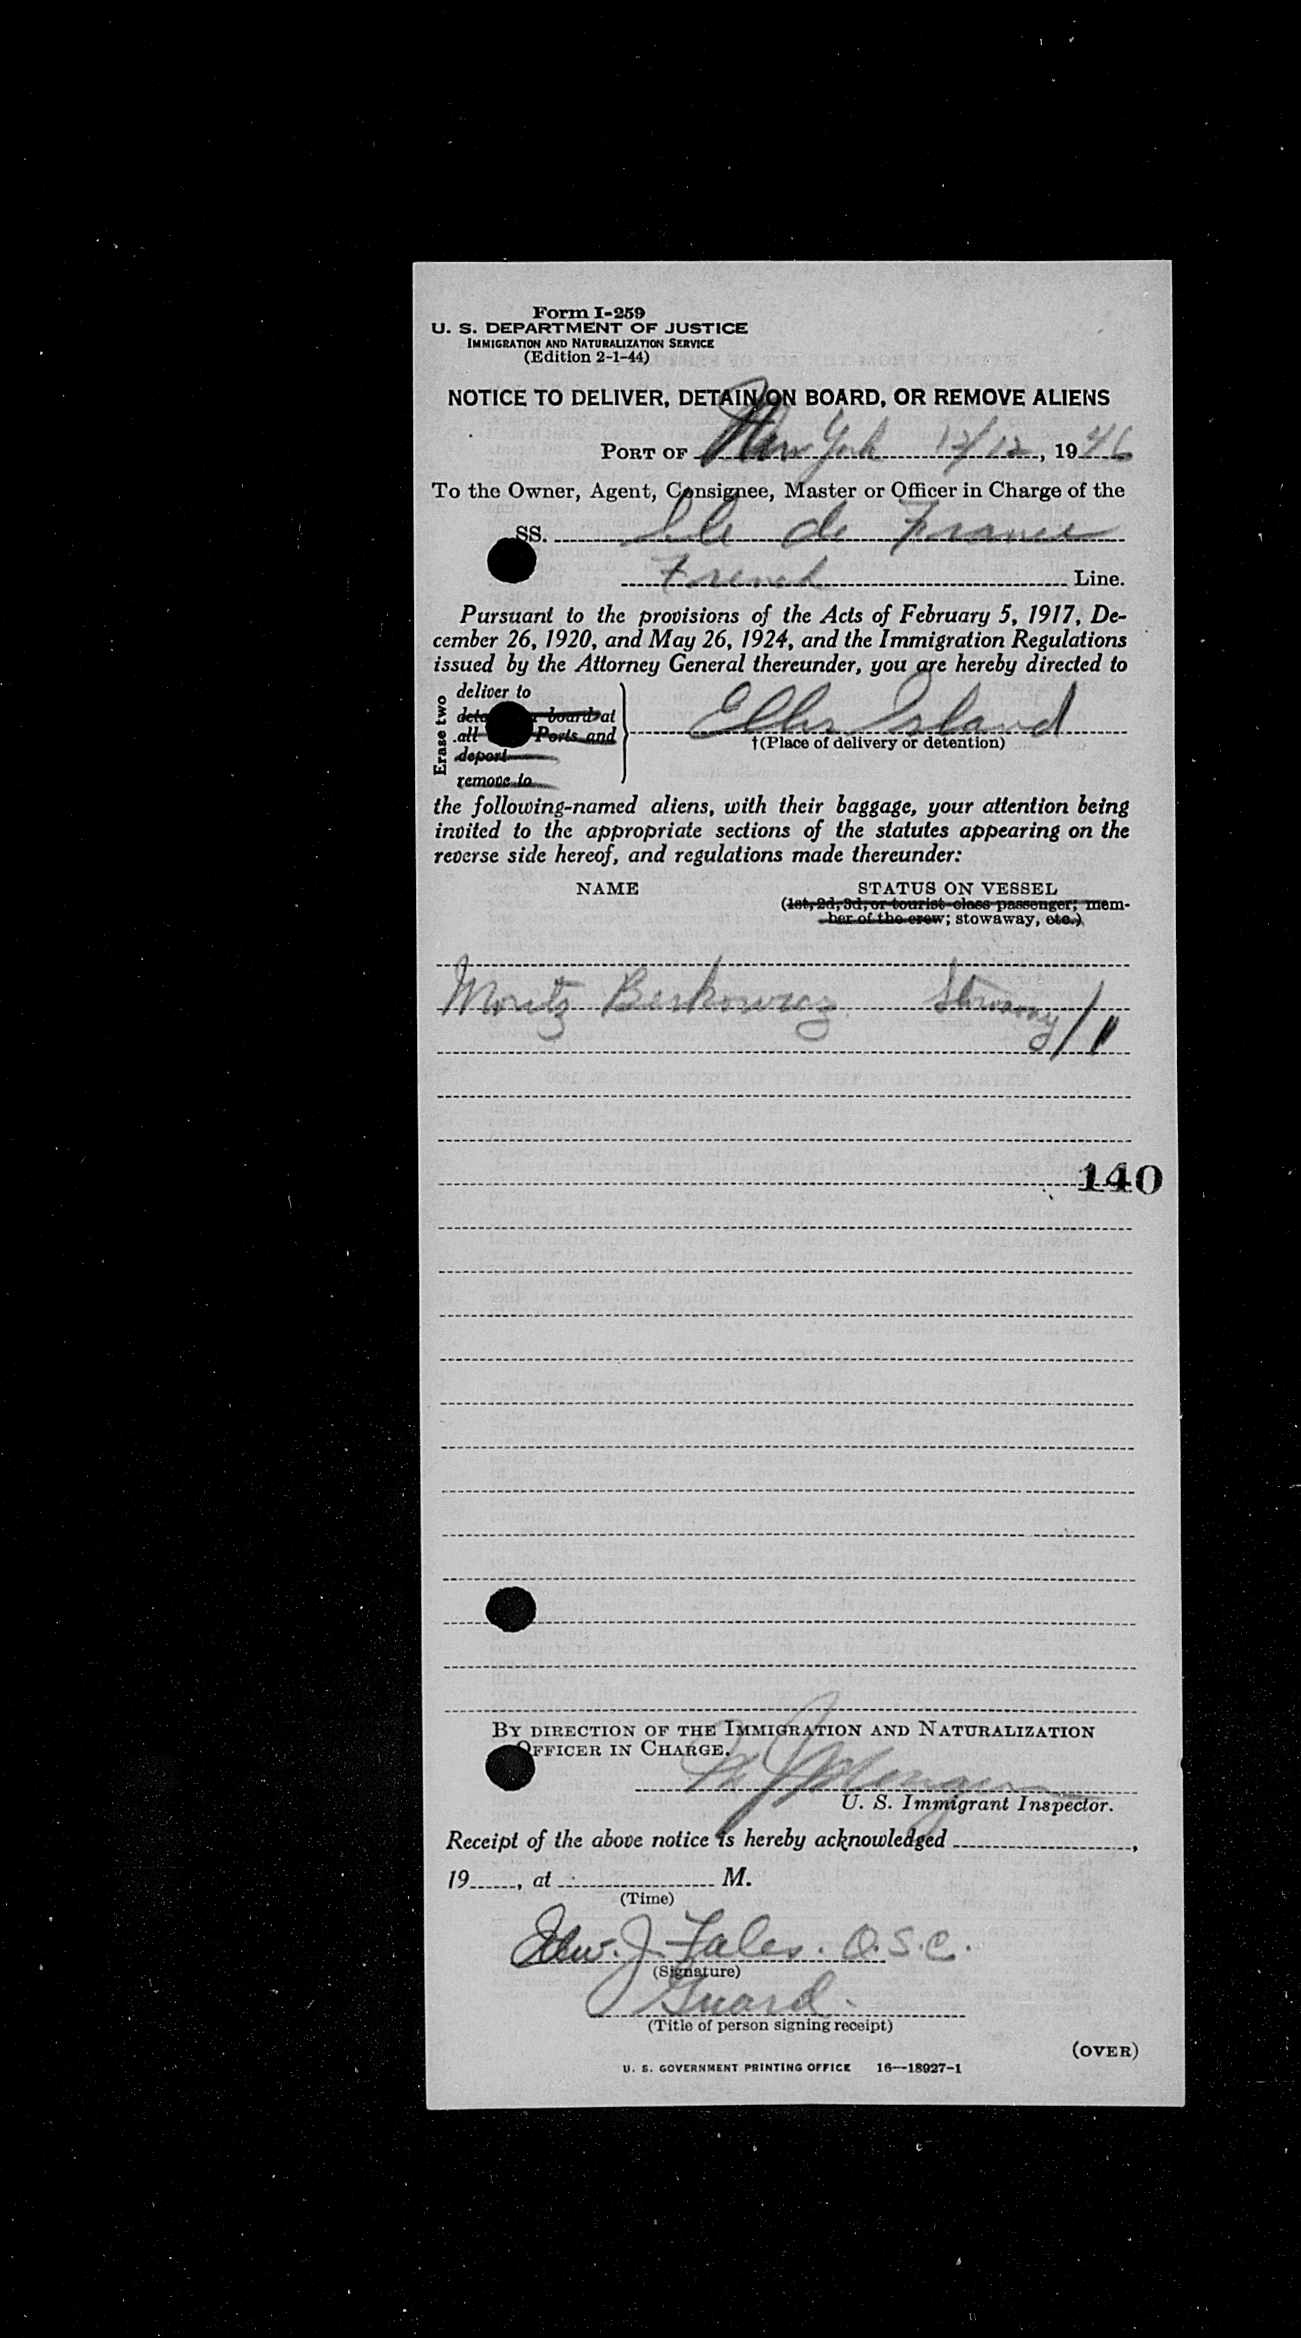 Form I-259
U. S. DEPARTMENT OF JUSTICE
IMMIGRATION AND NATURALIZATION SERVICE
(Edition 2-1-44)
NOTICE TO DELIVER, DETAIN ON BOARD, OR REMOVE ALIENS
PORT OF New York 12/12, 1946
To the Owner, Agent, Consignee, Master or Officer in Charge of the
SS. Ile de France
French Line.
Pursuant to the provisions of the Acts of February 5, 1917, De-
cember 26, 1920, and May 26, 1924, and the Immigration Regulations
issued by the Attorney General thereunder, you are hereby directed to
Erase two
deliver to
board at
all Ports and
deport
remove to
Ellis Island
†(Place of delivery or detention)
the following-named aliens, with their baggage, your attention being
invited to the appropriate sections of the statutes appearing on the
reverse side hereof, and regulations made thereunder:
NAME STATUS ON VESSEL
(1st, 2d, 3d, or tourist class passenger; mem-
ber of the crew; stowaway, etc.)
Moritz Berkowicz Stowaway /1
140
BY DIRECTION OF THE IMMIGRATION AND NATURALIZATION
OFFICER IN CHARGE.
U. S. Immigrant Inspector.
Receipt of the above notice is hereby acknowledged ,
19 , at M.
(Time)
Edw. J. Fales. O.S.C.
(Signature)
Guard.
(Title of person signing receipt)
(OVER)
U. S. GOVERNMENT PRINTING OFFICE 16—18927-1